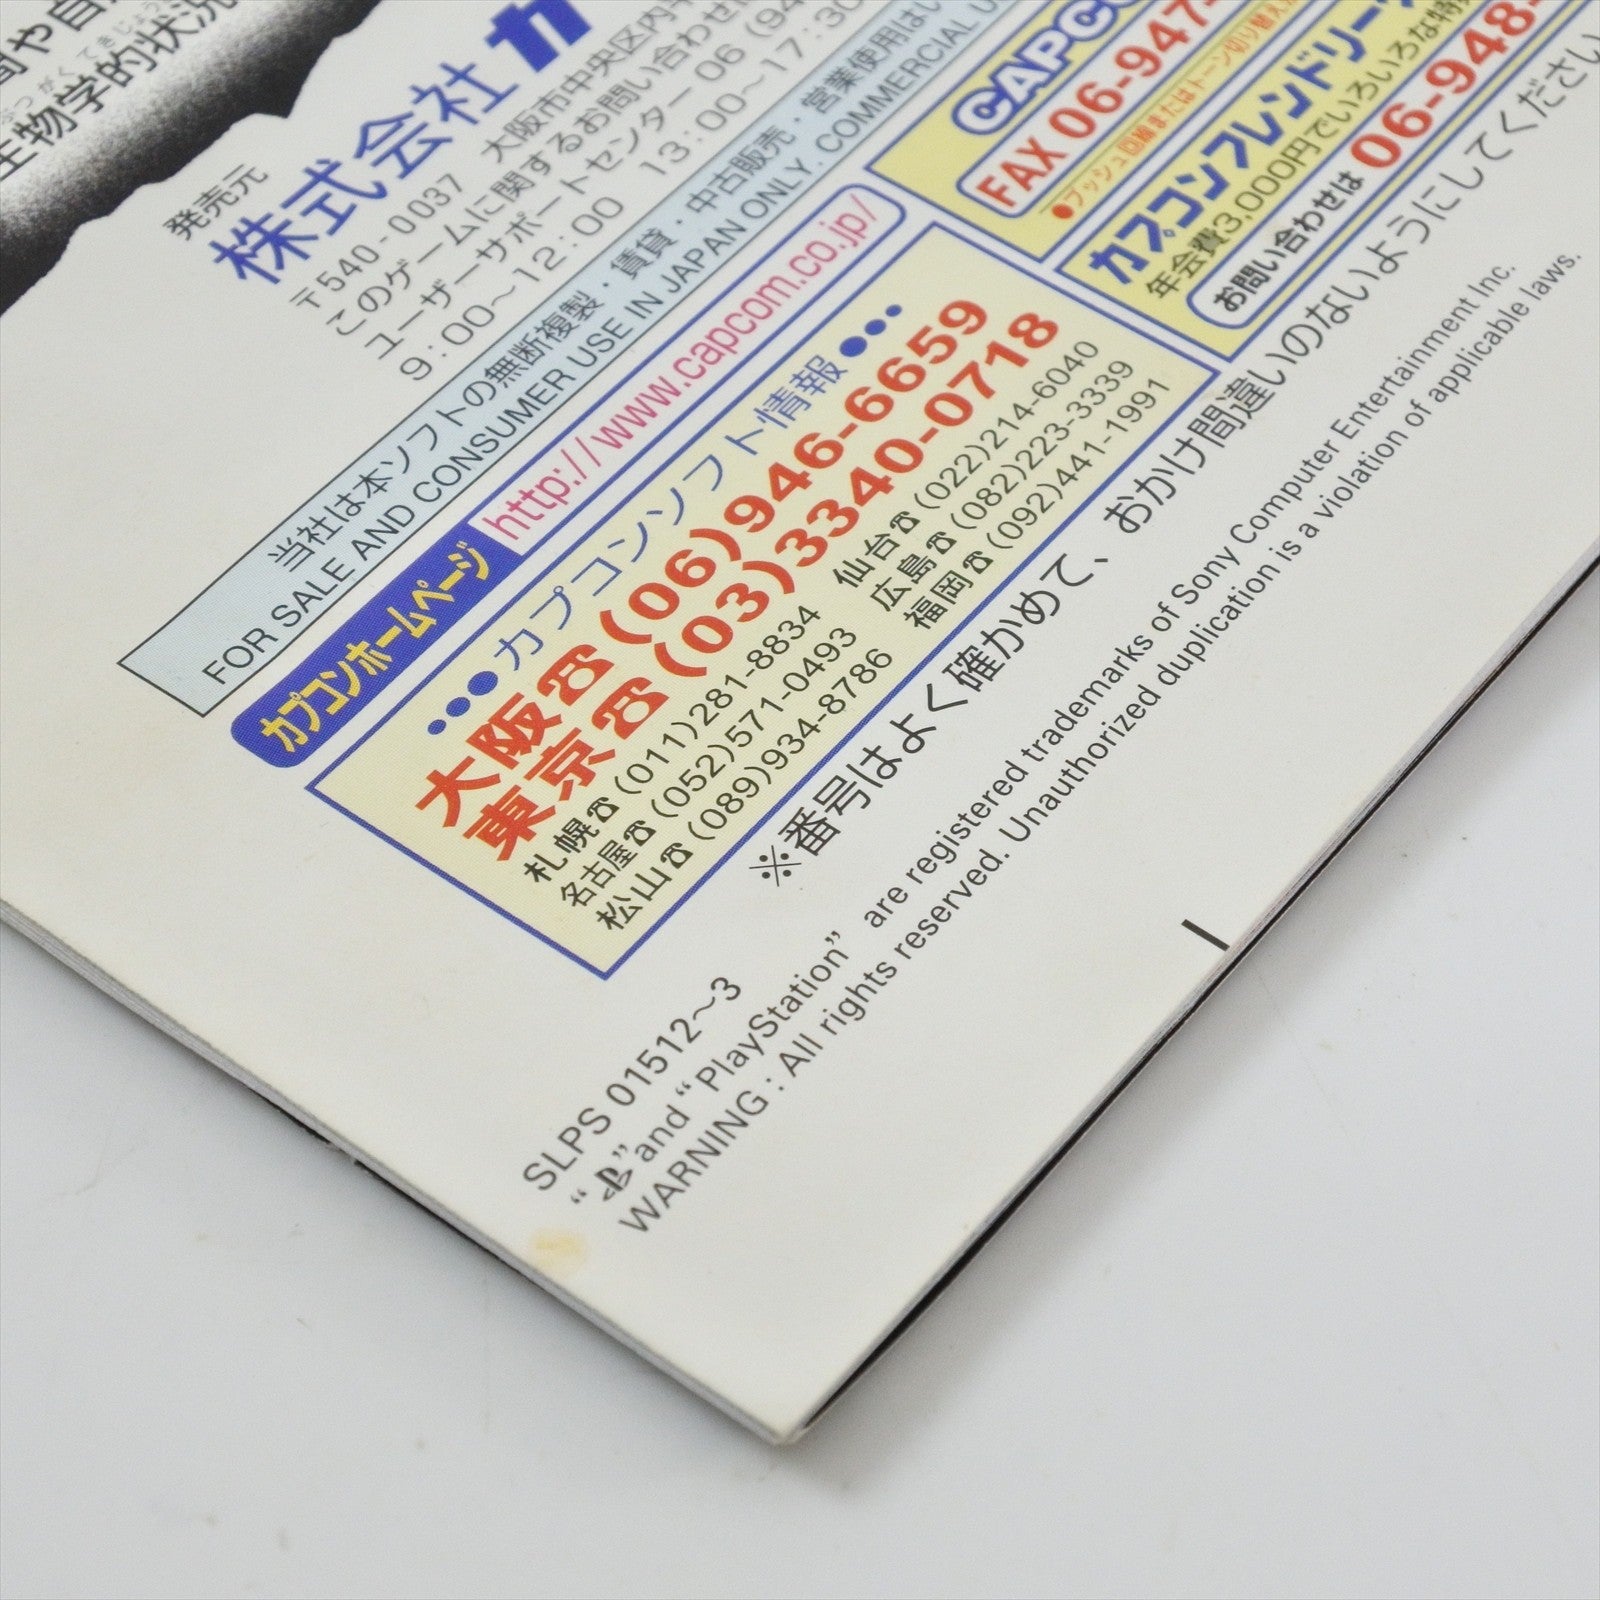 生物学的状況
発売元
株式会社 カ
〒540-0037 大阪市中央区内平
このゲームに関するお問い合わせは
ユーザーサポートセンター 06 (94
9:00〜12:00 13:00〜17:30
当社は本ソフトの無断複製・賃貸・中古販売・営業使用は
FOR SALE AND CONSUMER USE IN JAPAN ONLY. COMMERCIAL U
カプコンホームページ http://www.capcom.co.jp/
カプコンソフト情報
大阪☎(06)946-6659
東京☎(03)3340-0718
札幌☎(011)281-8834 仙台☎(022)214-6040
名古屋☎(052)571-0493 広島☎(082)223-3339
松山☎(089)934-8786 福岡☎(092)441-1991
CAPCO
FAX 06-947-
●プッシュ回線またはトーン切り替え
カプコンフレンドリー
年会費3,000円でいろいろな特
お問い合わせは 06-948-
※番号はよく確かめて、おかけ間違いのないようにしてください
SLPS 01512〜3
“ ” and “PlayStation” are registered trademarks of Sony Computer Entertainment Inc.
WARNING : All rights reserved. Unauthorized duplication is a violation of applicable laws.